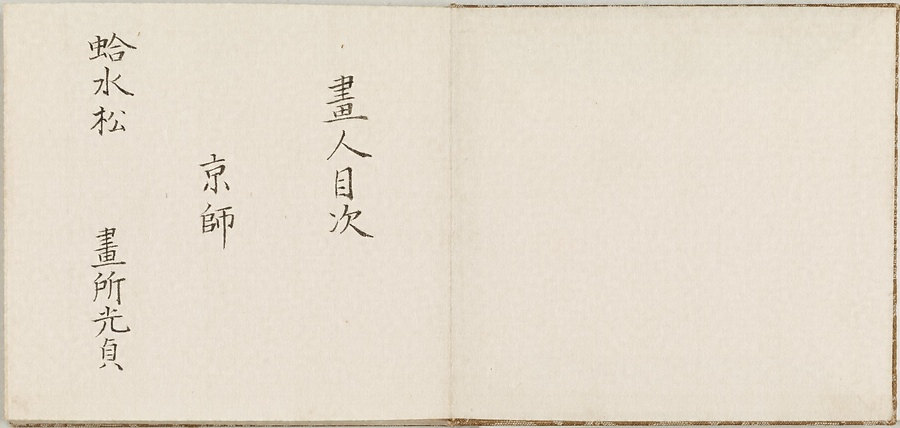 畫人目次
京師
蛤水松 畫所光貞